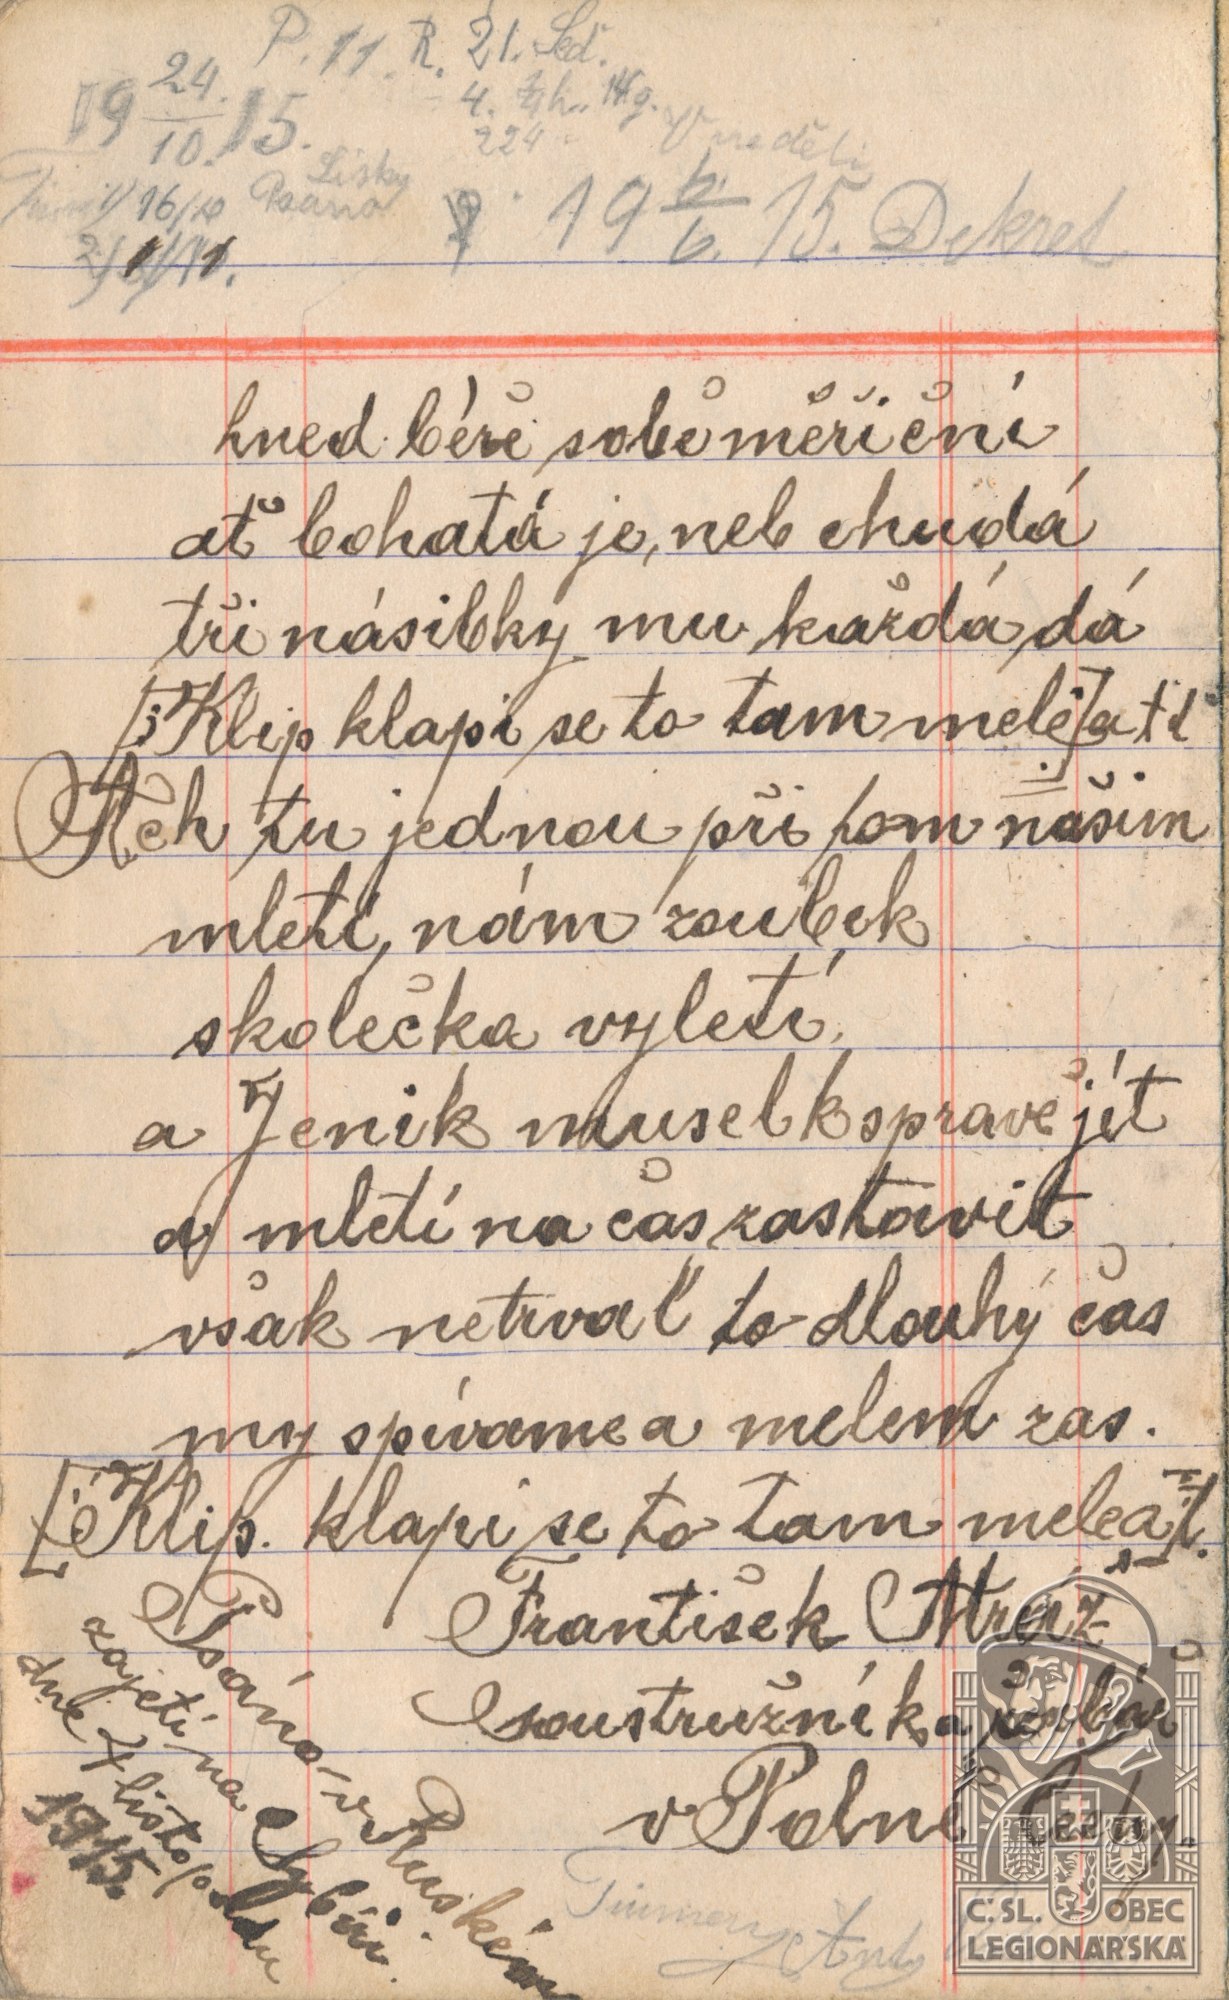 P. 11. R. 21. Led.
19 24./10. 15.
4.
224
V neděli
Lisky
Psáno
16/10
19 6./6. 15. Dekret
2/ 1/11.
hned béře sobě měřični
ať bohatá je, neb chudá
tři násibky mu každá dá
[: Klip klapi se to tam mele :] a t d
Ach tu jednou při tom našim
mletí, nám zoubek
skolečka vyletí,
a Jenik musel k spravě jít
a mletí na čas zastavit
však netrval to dlouhý čas
my spívame a melem zas.
[: Klip. klapi se to tam mele a t.
František Mráz
soustružník a
v Polné Čechy.
Psáno v Ruském
zajetí na Sybiři.
dne 7 listopadu
1915.
Č. SL. OBEC
LEGIONÁŘSKÁ